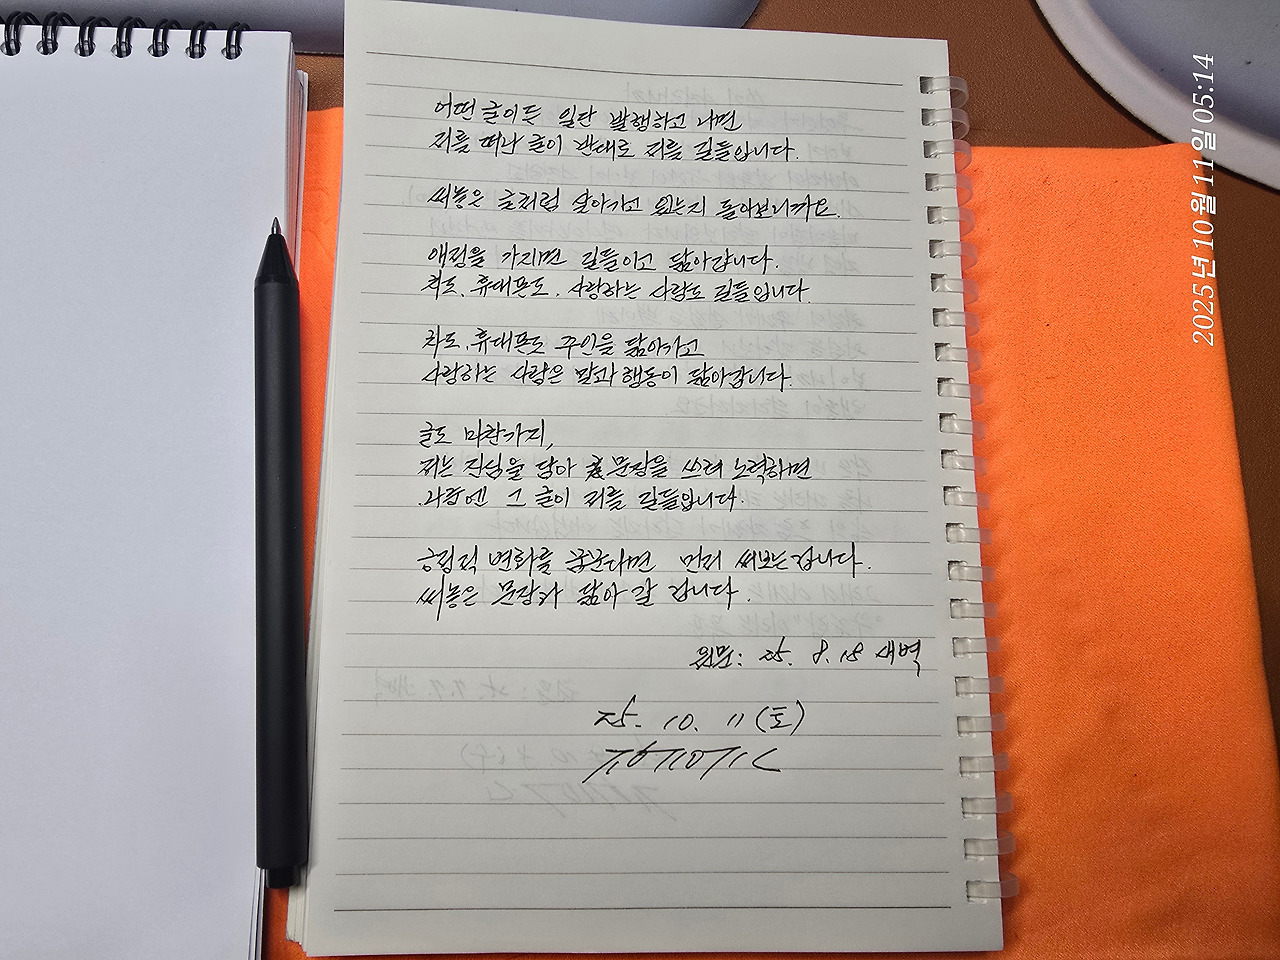 어떤 글이든 일단 발행하고 나면
저를 떠나 글이 반대로 저를 길들입니다.
써놓은 글처럼 살아가고 있는지 돌아보니까요.
애정을 가지면 길들이고 닮아갑니다.
차도, 휴대폰도, 사랑하는 사람도 길들입니다.
차도, 휴대폰도 주인을 닮아가고
사랑하는 사람은 말과 행동이 닮아갑니다.
글도 마찬가지,
저는 진심을 담아 문장을 쓰려 노력하면
나중엔 그 글이 저를 길들입니다.
긍정적 변화를 꿈꾼다면 먼저 써보는겁니다.
써놓은 문장과 닮아 갈 겁니다.
원문: 25. 8. 18 새벽
25. 10. 11 (토)
2025년 10월 11일 05:14